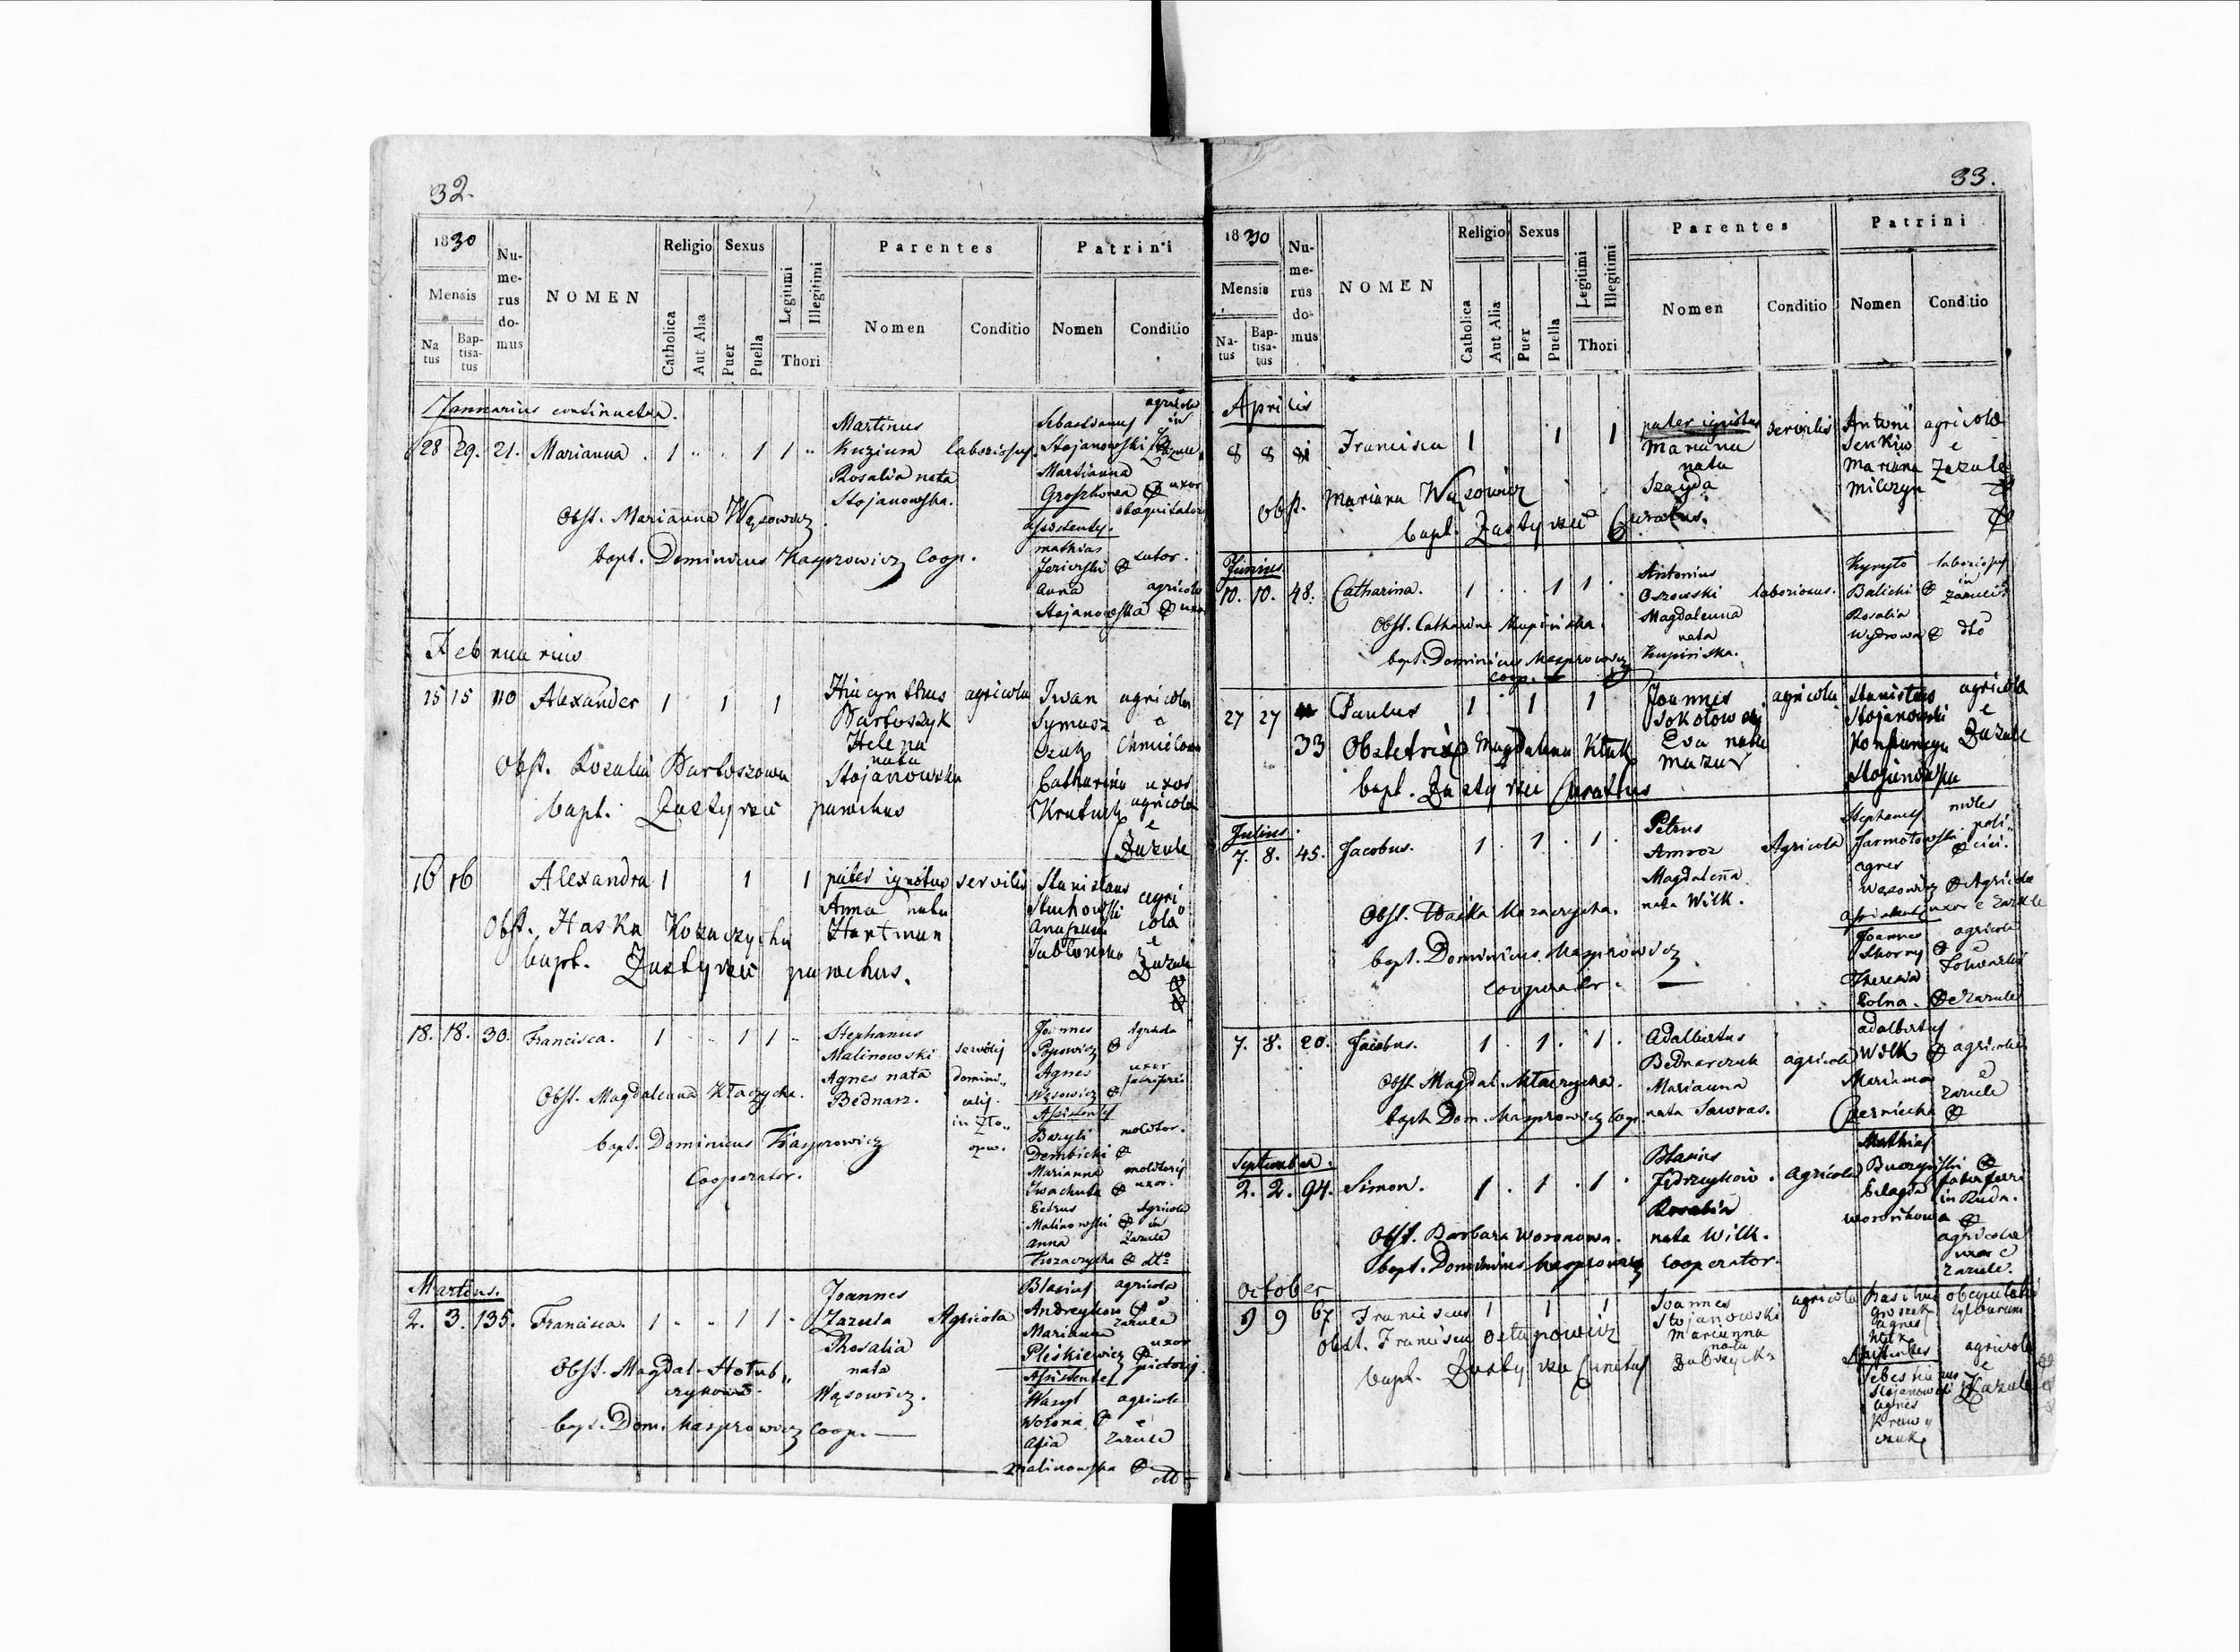 32.
1830
Mensis
Natus
Baptisatus
Numerus domus
NOMEN
Religio
Catholica
Aut Alia
Sexus
Puer
Puella
Legitimi
Illegitimi
Thori
Parentes
Nomen
Conditio
Patrini
Nomen
Conditio
Januarius continuatur.
28 29. 21. Marianna . 1 1 1
Martinus
Kuzium
Rosalia nata
Stojanowska.
Sebastianus agricola in
Stojanowski
Martianna
Groszkowa uxor
Obst. Marianna Wąsowicz
bapt. Dominicus Kasprowicz Coop.
Assistentes.
Mathias
sutor.
Anna agricola
Stojanowska uxor
Februarius
15 15 110 Alexander 1 1 1
Hiacynthus agricola
Bartoszyk
Helena
nata
Stojanowska
Iwan agricola
Symasz e
Catharina uxor
agricola
e
Zazule
Obst. Rozalia Bartoszowa
bapt. Zastyrzec parochus
16 16 Alexandra 1 1 1
pater ignotus servilis
Anna nata
Hartman
Stanislaus agri
cola
e
Zazule
Obst. Haska Kozaczycha
bapt. Zastyrzec parochus.
18. 18. 30. Francisca. 1 1 1
Stephanus
Malinowski
Agnes nata
Bednarz.
Joannes Agricola
Popowicz
Agnes uxor
Wąsowicz
Assistentes
Bazyli molitor.
Dembicki
Marianna molitoris
Iwachuta uxor.
Petrus Agricola
Malinowski in
Anna Zazule
Kozaczycha dto
Obst. Magdalenna Kłaczycha.
bapt. Dominicus Kasprowicz
Cooperator.
Martius.
2. 3. 135. Francisca. 1 1 1
Joannes
Zazula Agricola
Rosalia
nata
Wąsowicz.
Blasius agricola
Andreykow e
Marianna Zazule
Pleskiewicz uxor
Assistentes pictoris
Wasyl agricola
Worona e
Zazule
Malinowska dto
Obst. Magdal. Hołub„
bapt. Dom. Kasprowicz Coop.
33.
1830
Mensis
Natus
Baptisatus
Numerus domus
NOMEN
Religio
Catholica
Aut Alia
Sexus
Puer
Puella
Legitimi
Illegitimi
Thori
Parentes
Nomen
Conditio
Patrini
Nomen
Conditio
Aprilis
8 8 81 Francisca 1 1 1
pater ignotus servilis
Mariana
nata
Szayda
Antoni agricola
Senkiw e
Mariana Zazule
Milczyn
Obst. Mariana Wąsowicz
bapt. Zastyrzec Curatus.
Junius
10. 10. 48. Catharina. 1 1 1
Antonius
Osowski laboriosus.
Magdalenna
nata
Krupińska.
Hyneyto
Balicki in Zazule
Rosalia
Wydrowa dto
Obst. Catharina Krupińska.
bapt. Dominicus Kasprowicz
coop.
27 27 33 Paulus 1 1 1
Joannes agricola
Sokołowski
Eva nata
Mazur
Stanislaus agricola
Stojanowski e
Zazule
Stojanowska
Obstetrix Magdalena Kłak
bapt. Zastyrzec Curatus
Julius.
7. 8. 45. Jacobus. 1 1 1
Petrus
Amroz Agricola
Magdalena
nata Wilk.
Stephanus
Jarmołowski
Agnes
Wąsowicz Agricola
uxor e Zazule
Joannes agricola
Skorny e
Theresia
Polna. e Zazule
Obst. Haska Kozaczycha.
bapt. Dominicus Kasprowicz
cooperator.
7. 8. 20. Jacobus. 1 1 1
Adalbertus
Bednarczuk agricola
Marianna
nata Sawras.
Adalbertus
Wilk agricola
Marianna e
Czerniecka Zazule
Obst Magdal. Kłaczycha.
bapt. Dom. Kasprowicz Coop.
September.
2. 2. 94. Simon. 1 1 1
Blasius
Jędrzeykow. Agricola
Rosalia
nata Wilk.
Mathias
Buczyński
in Ruda.
Woronikowa
agricola
uxor e
Zazule.
Obst. Barbara Woronowa.
bapt. Dominicus Kasprowicz cooperator.
October
9 9 67 Franciscus 1 1 1
Joannes agricola
Stojanowski
Marianna
nata
Groszek
Agnes
Wilk
Assistentes agricola
Sebestianus e
Stojanowski Zazule
Agnes
obst. Francisca Ostapowicz
bapt. Zastyrzec Curatus